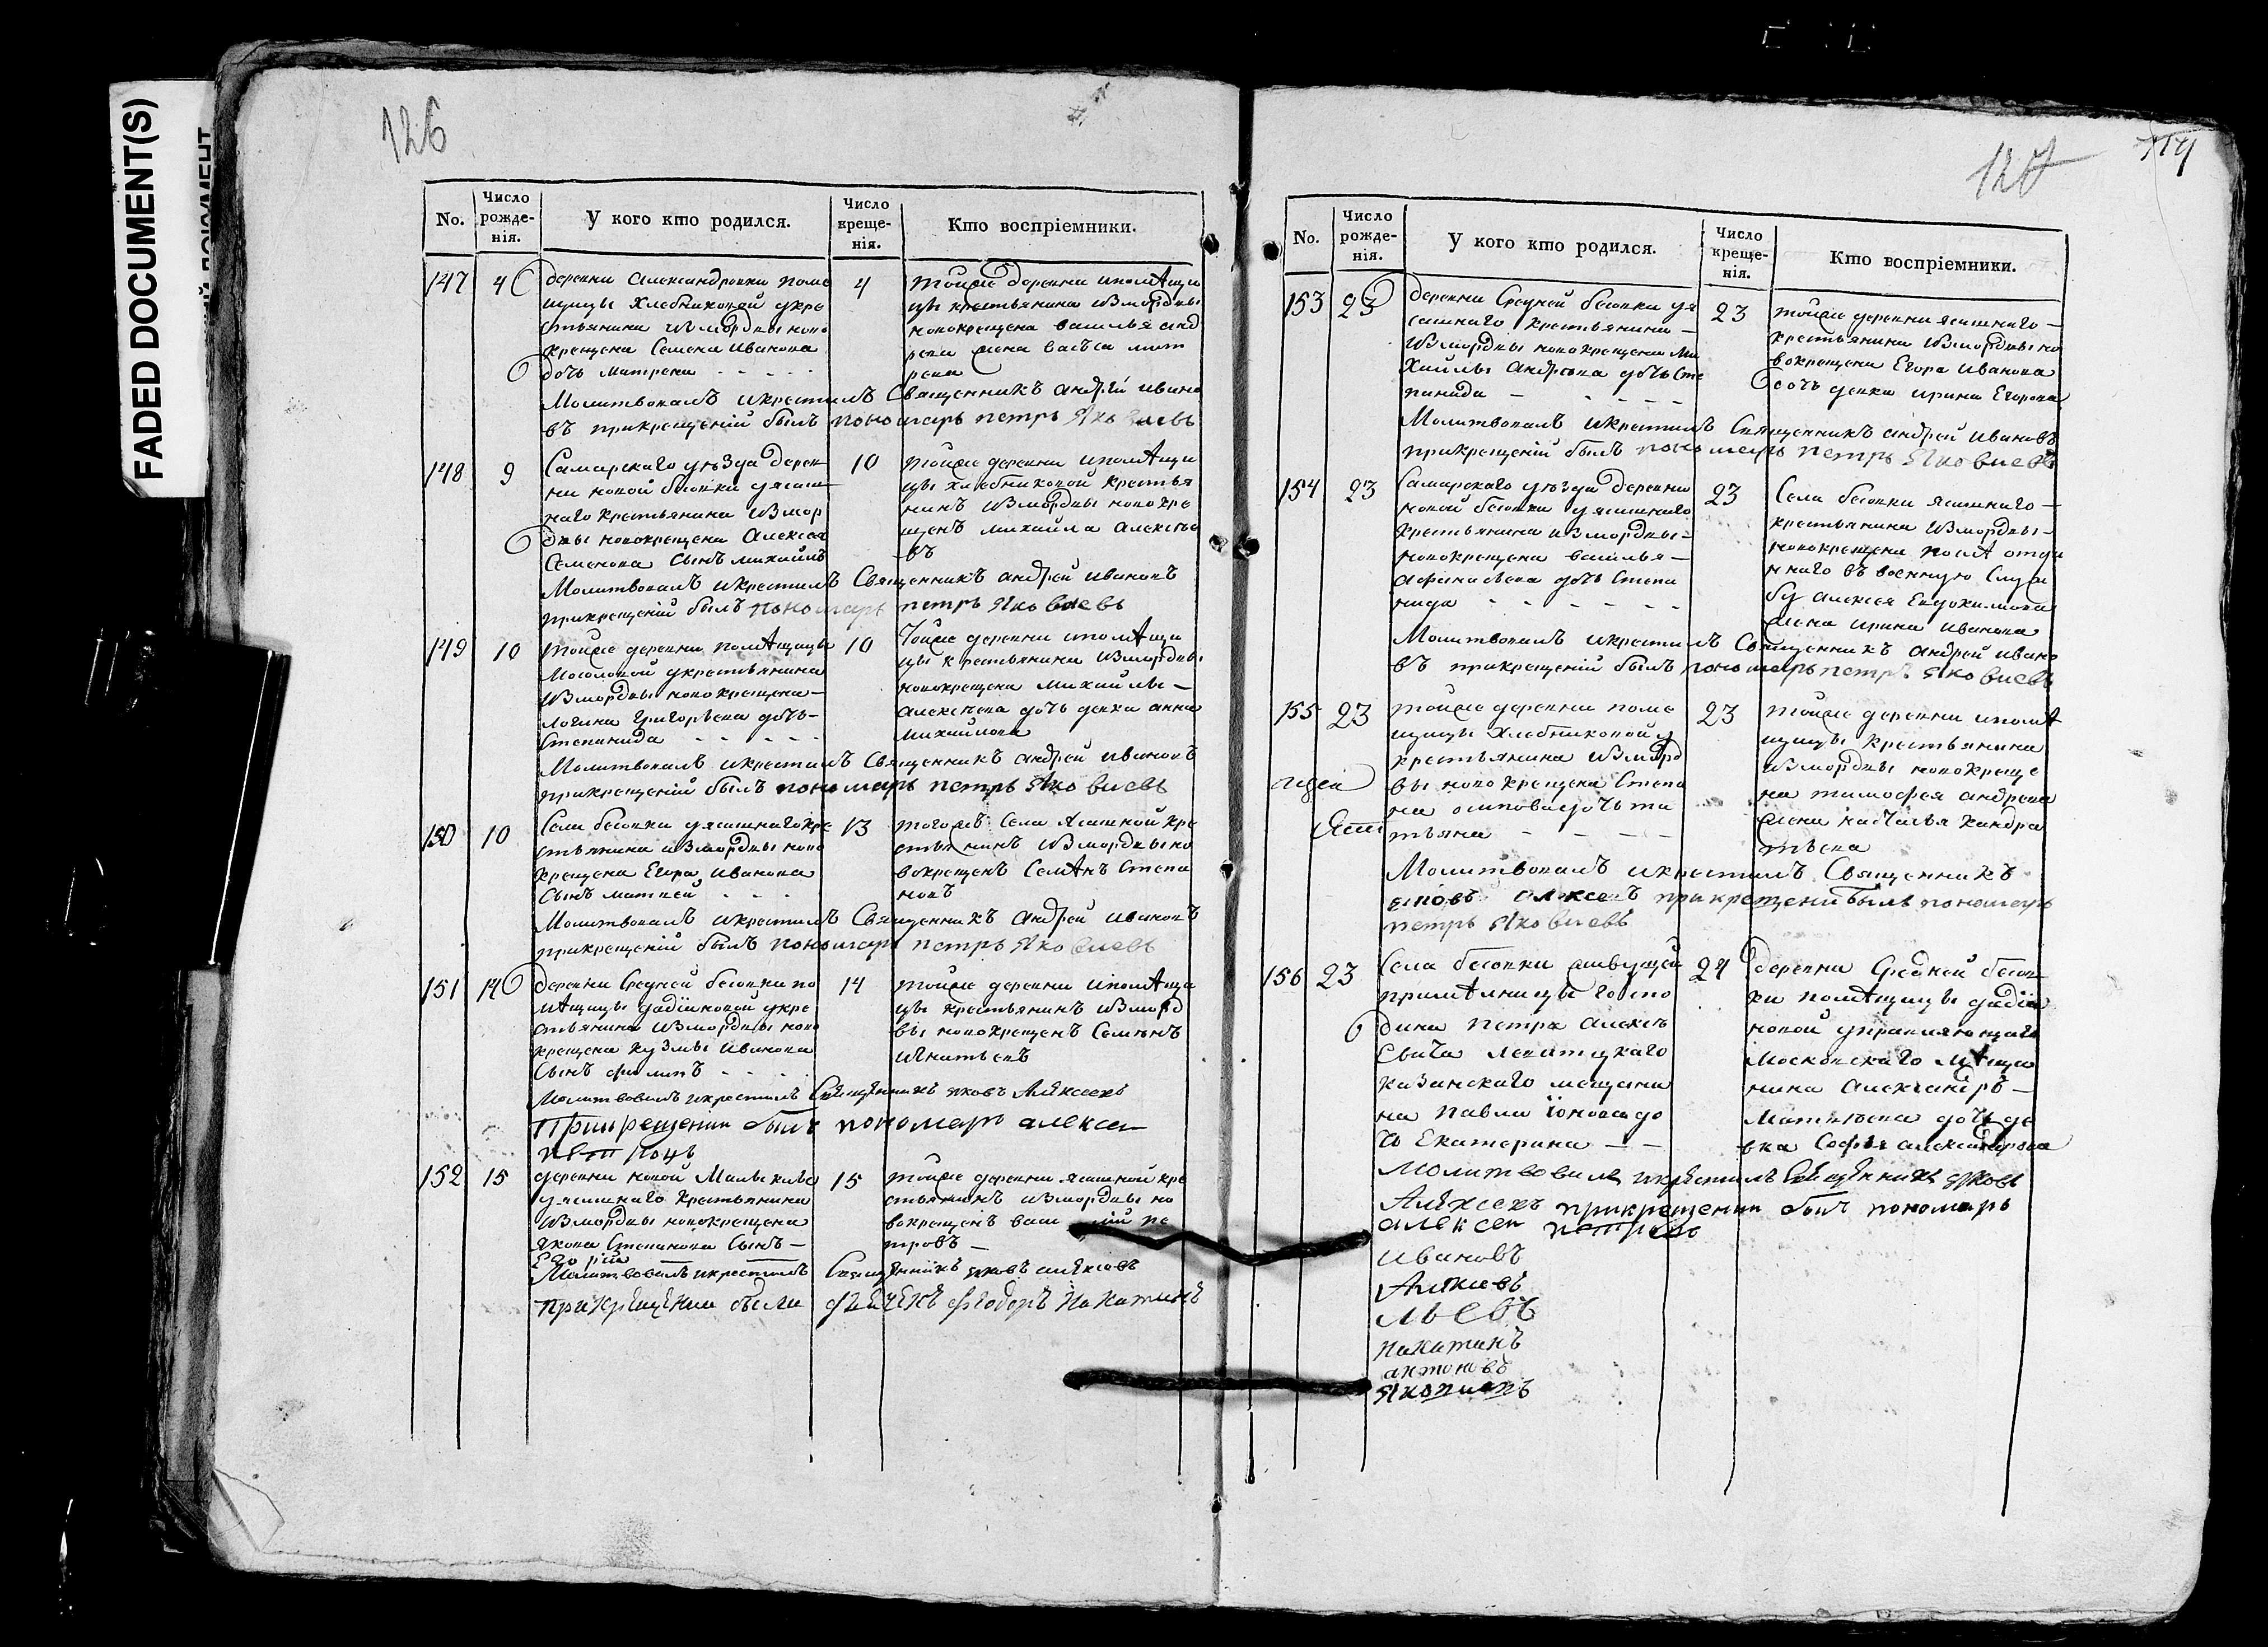 FADED DOCUMENT(S)
126
No.
Число рожде-нія.
У кого кто родился.
Число креще-нія.
Кто воспріемники.
147
4
деревни Александровки поме
щицы Хлебниковой укре
стьянина измордвы ново
крещена Семена Иванова
дочь Матрена
4
тойже деревни ипомѣщи
цы крестьянина Измордвы
новокрещена василья анд
Молитвовалъ икрестилъ Священникъ андрей ивано
въ прикрещеній былъ пономарь петръ Яковлевъ
148
9
Самарскаго уѣзда дерев
ни новой бесовки уясаш
наго крестьянина Измор
двы новокрещена Алексея
Семенова Сынъ михайлъ
10
тойже деревни ипомѣщи
цы хлебниковой крестья
нинъ Измордвы новокре
щенъ михайла алексѣе
въ
Молитвовалъ икрестилъ Священникъ андрей ивановъ
прикрещеній былъ пономарь петръ Яковлевъ
149
10
тойже деревни помѣщицы
Мосоловой укрестьянина
Измордвы новокрещена
Логина Григорьева дочь
Степанида
10
Тойже деревни ипомѣщи
цы крестьянина Измордвы
новокрещена михайлы
алексѣева дочь девка анна
михайлова
Молитвовалъ икрестилъ Священникъ андрей ивановъ
прикрещеній былъ пономарь петръ Яковлевъ
150
10
Села бесовки уясашнагокре
стьянина измордвы ново
крещена Егора Иванова
Сынъ матвей
13
тогожъ Села Ясашной кре
стьянинъ Измордвы но
вокрещенъ Семѣнъ Степа
новъ
Молитвовалъ икрестилъ Священникъ андрей ивановъ
прикрещеній былъ пономарь петръ Яковлевъ
151
14
деревни Средней бесовки по
мѣщицы укре
стьянина измордвы ново
крещена кузмы Иванова
Сынъ филипъ
14
тойже деревни ипомѣщи
цы крестьянинъ Изморд
вы новокрещенъ Семѣнъ
Игнатьевъ
Молитвовалъ икрестилъ Священникъ яковъ Алексеевъ
Прикрещении былъ пономарь алексеи
152
15
деревни новой Малыклы
уясашнаго крестьянина
Измордвы новокрещена
Якова Степанова Сынъ
15
тойже деревни ясашной кре
стьянинъ измордвы но
вокрещенъ пе
тровъ
Молитвовалъ икрестилъ Священникъ яковъ алексеевъ
прикрещении были федоръ Никитинъ
127
No.
Число рожде-нія.
У кого кто родился.
Число креще-нія.
Кто воспріемники.
153
23
деревни Средней бесовки уя
сашнаго крестьянина
Измордвы новокрещена Ми
хайлы андреева дочь Сте
панида
23
тойже деревни ясашнаго
крестьянина Измордвы но
вокрещена Егора Иванова
дочь девка ирина Егорова
Молитвовалъ икрестилъ Священникъ андрей ивановъ
прикрещеній былъ пономарь петръ Яковлевъ
154
23
Самарскаго уѣзда деревни
новой бесовки уясашнаго
крестьянина измордвы
новокрещена василья
афанасьева дочь Степа
нида
23
Села бесовки ясашнаго
крестьянина Измордвы
новокрещена послѣ отда
ннаго въ военную Служ
бу алексея Евдокимова
жена ирина иванова
Молитвовалъ икрестилъ Священникъ андрей ивано
въ прикрещеній былъ пономарь петръ Яковлевъ
155
23
тойже деревни поме
щицы Хлебниковой у
крестьянина Изморд
вы новокрещена Степа
на дочь та
тьяна
23
тойже деревни ипомѣ
щицы крестьянина
Измордвы новокреще
на тимофея андреева
жена наталья кандра
тьева
Молитвовалъ икрестилъ Священникъ
яковъ алексеевъ прикрещени былъ пономарь
петръ Яковлевъ
156
23
Села бесовки живущей
госпо
дина петра алексѣ
евича
казанскаго мещани
на павла Іонова до
чь Екатерина
24
деревни Средней бесов
ки помѣщицы
управляющаго
московскаго мѣща
нина александръ
Матвѣева дочь де
вка Софья александрова
Молитвовалъ икрестилъ Священникъ яковъ
Алексеевъ прикрещении былъ пономарь
алексеи петровъ
Ивановъ
никитинъ
антоновъ
Яковлевъ